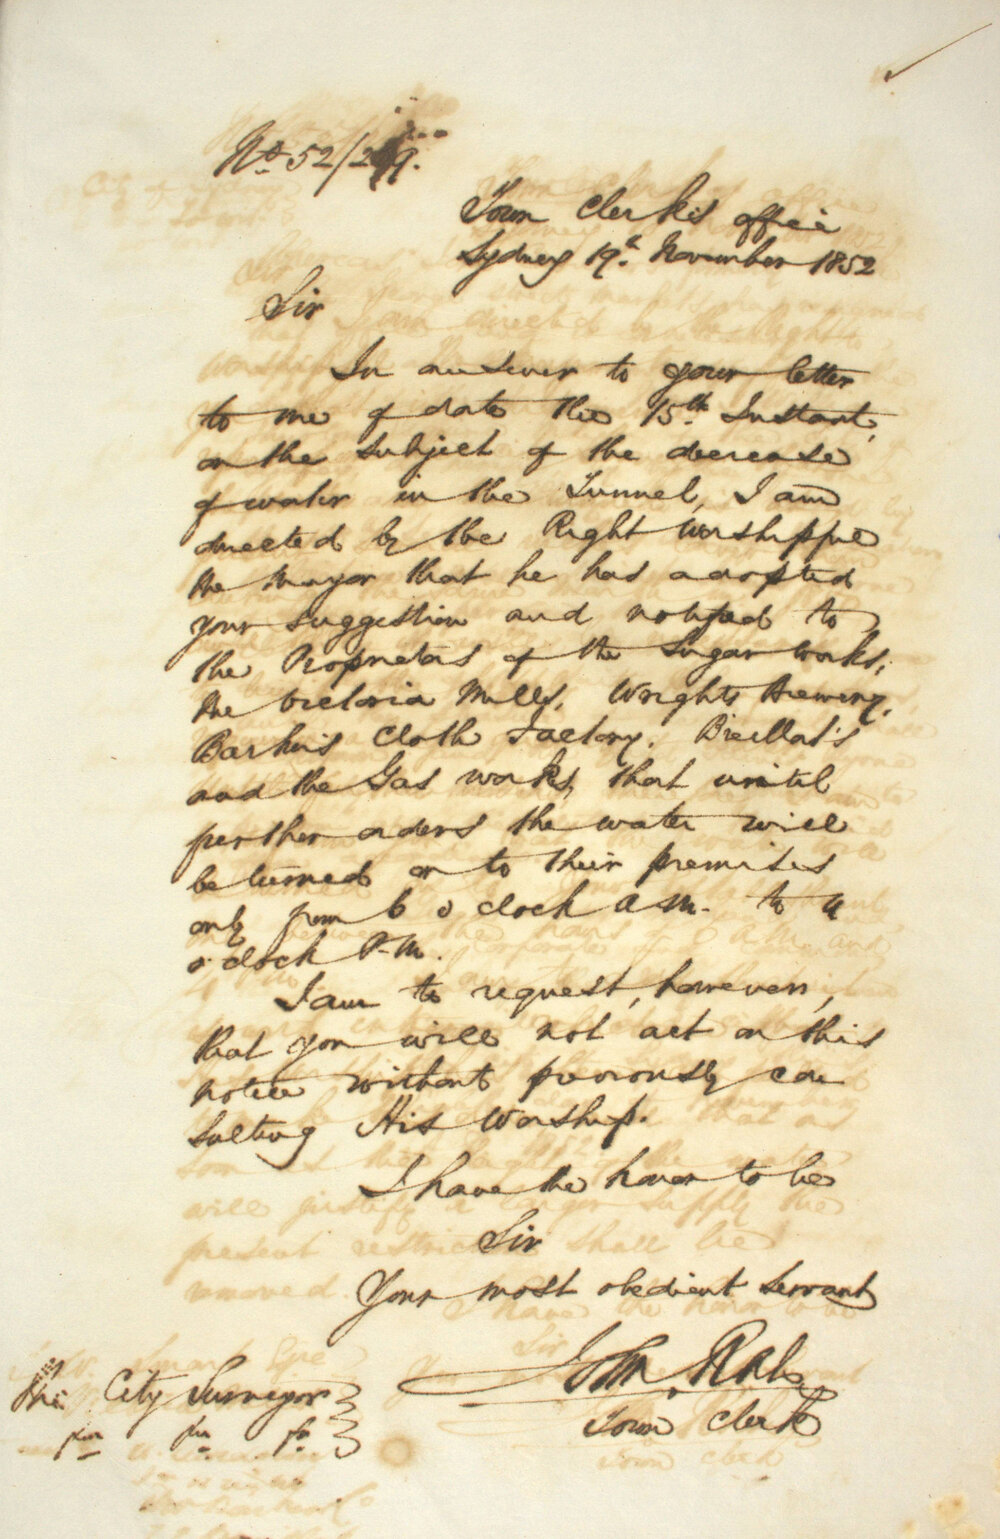 No. 52/2 9.
Town Clerk's Office
Sydney 19th November 1852
Sir
In answer to your letter
to me of date the 15th Instant,
on the subject of the decrease
of water in the Tunnel, I am
directed by the Right Worshipful
the Mayor that he has adopted
your suggestion and notified to
the Proprietors of the Sugar Works,
the Victoria Mills, Wrights Brewery,
Barker's Cloth Factory,
and the Gas works, that until
further orders the water will
be turned on to their premises
only from 6 o'clock A.M. to 4
o'clock P.M.
I am to request, however,
that you will not act on this
notice without previously con
sulting His Worship.
I have the honor to be
Sir
Your most obedient Servant
John Rae
Town Clerk
The City Surveyor